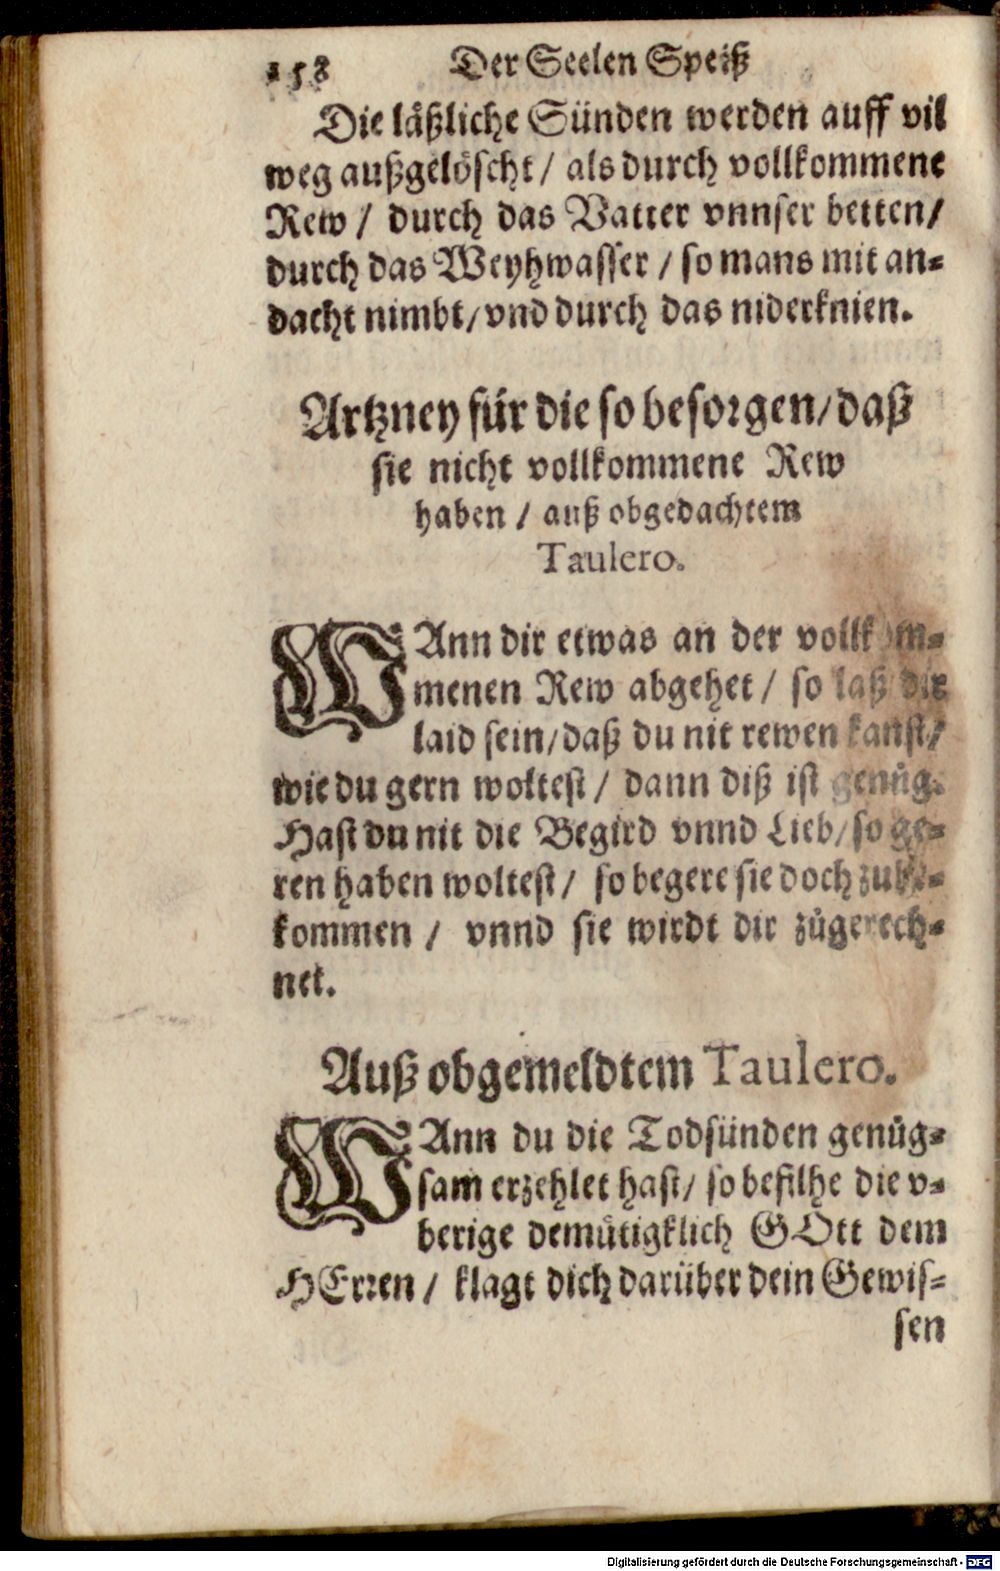 158 Der Seelen Speiß
Die låßliche Sünden werden auff vil
weg außgelöscht / als durch vollkommene
Rew / durch das Vatter vnnser betten /
durch das Weyhwasser / so mans mit an-
dacht nimbt / vnd durch das niderknien.
Artzney für die so besorgen / daß
sie nicht vollkommene Rew
haben / auß obgedachtem
Taulero.
WAnn dir etwas an der vollkom-
menen Rew abgehet / so laß dir
laid sein / daß du nit rewen kanst /
wie du gern woltest / dann diß ist genůg.
Hast du nit die Begird vnnd Lieb / so ge-
ren haben woltest / so begere sie doch zube-
kommen / vnnd sie wirdt dir zůgerech-
net.
Auß obgemeldtem Taulero.
WAnn du die Todsünden genůg-
sam erzehlet hast / so befilhe die v-
berige demütigklich GOtt dem
HErren / klagt dich darüber dein Gewis-
sen
Digitalisierung gefördert durch die Deutsche Forschungsgemeinschaft - DFG